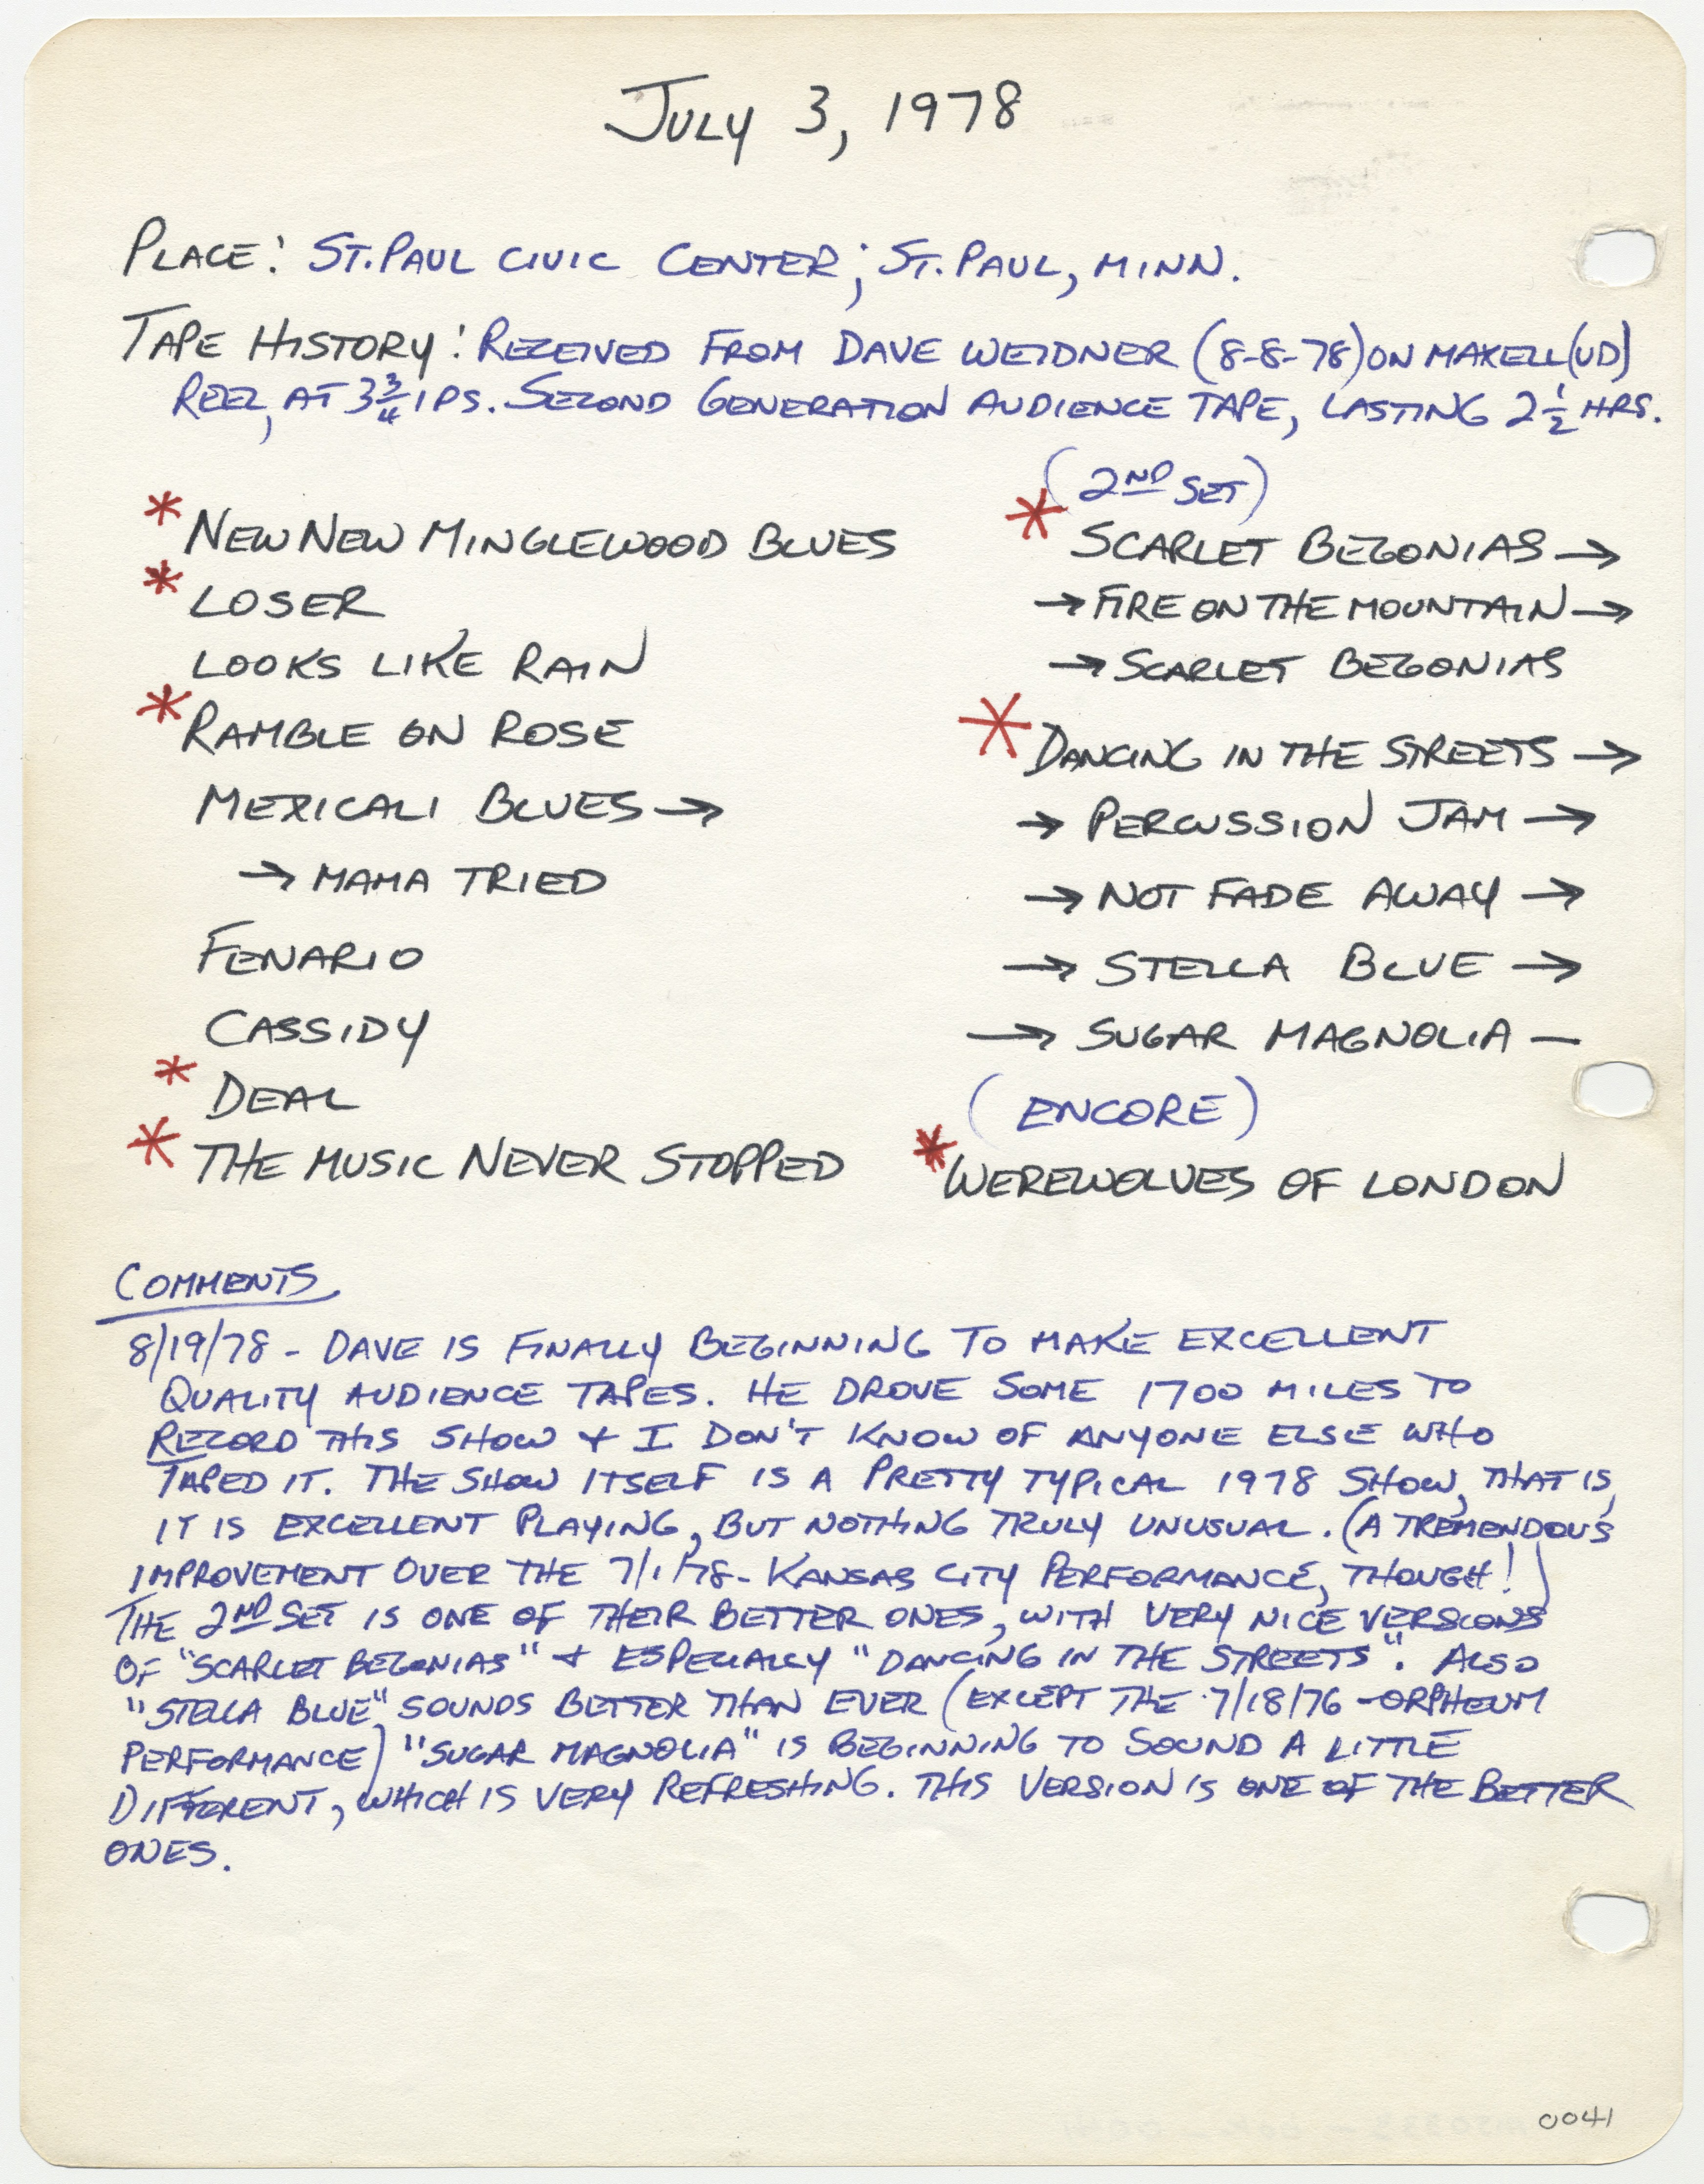 July 3, 1978
Place: St. Paul Civic Center; St. Paul, Minn.
Tape History: Received from Dave Weidner (8-8-78) on Maxell (UD)
Reel, at 3 3/4 ips. Second Generation Audience Tape, lasting 2 1/2 hrs.
* New New Minglewood Blues
* Loser
Looks Like Rain
* Ramble on Rose
Mexicali Blues →
→ Mama Tried
Fenario
Cassidy
* Deal
* The Music Never Stopped
(2nd Set)
* Scarlet Begonias →
→ Fire on the Mountain →
→ Scarlet Begonias
* Dancing in the Streets →
→ Percussion Jam →
→ Not Fade Away →
→ Stella Blue →
→ Sugar Magnolia —
(Encore)
* Werewolves of London
Comments
8/19/78 - Dave is finally beginning to make excellent
quality audience tapes. He drove some 1700 miles to
record this show + I don't know of anyone else who
taped it. The show itself is a pretty typical 1978 show, that is,
it is excellent playing, but nothing truly unusual. (A tremendous
improvement over the 7/1/78 - Kansas City performance, though!)
The 2nd Set is one of their better ones, with very nice versions
of "Scarlet Begonias" + especially "Dancing in the Streets". Also
"Stella Blue" sounds better than ever (except the 7/18/76 - Orpheum
performance) "Sugar Magnolia" is beginning to sound a little
different, which is very refreshing. This version is one of the better
ones.
0041